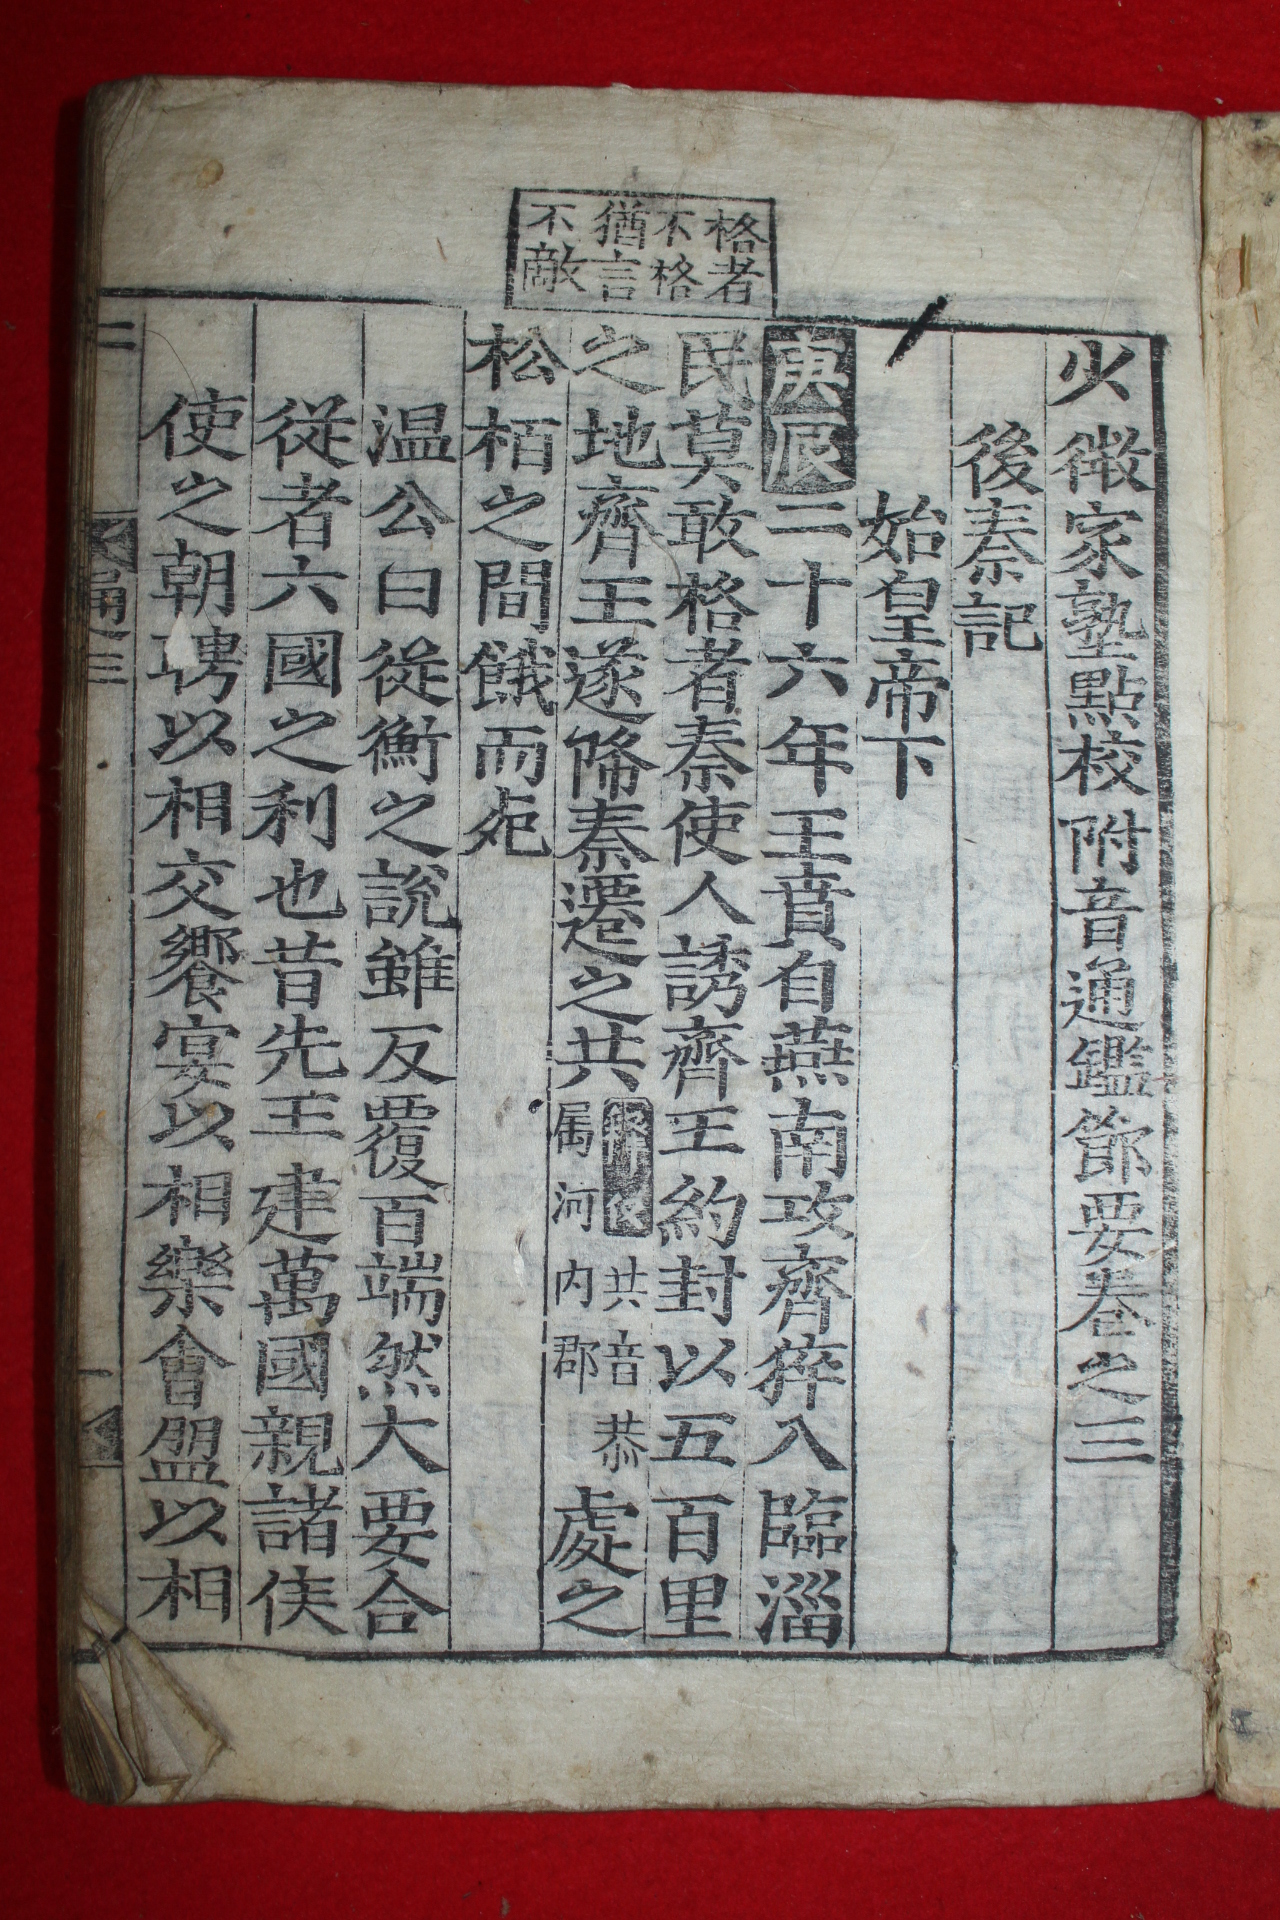 格者
不格
猶言
不敵
少微家塾點校附音通鑑節要卷之三
後秦記
始皇帝下
庚辰二十六年王賁自燕南攻齊猝入臨淄
民莫敢格者秦使人誘齊王約封以五百里
之地齊王遂降秦遷之共
共音恭
屬河內郡
處之
松栢之間餓而死
温公曰從衡之說雖反覆百端然大要合
從者六國之利也昔先王建萬國親諸侯
使之朝聘以相交饗宴以相樂會盟以相
二
通三